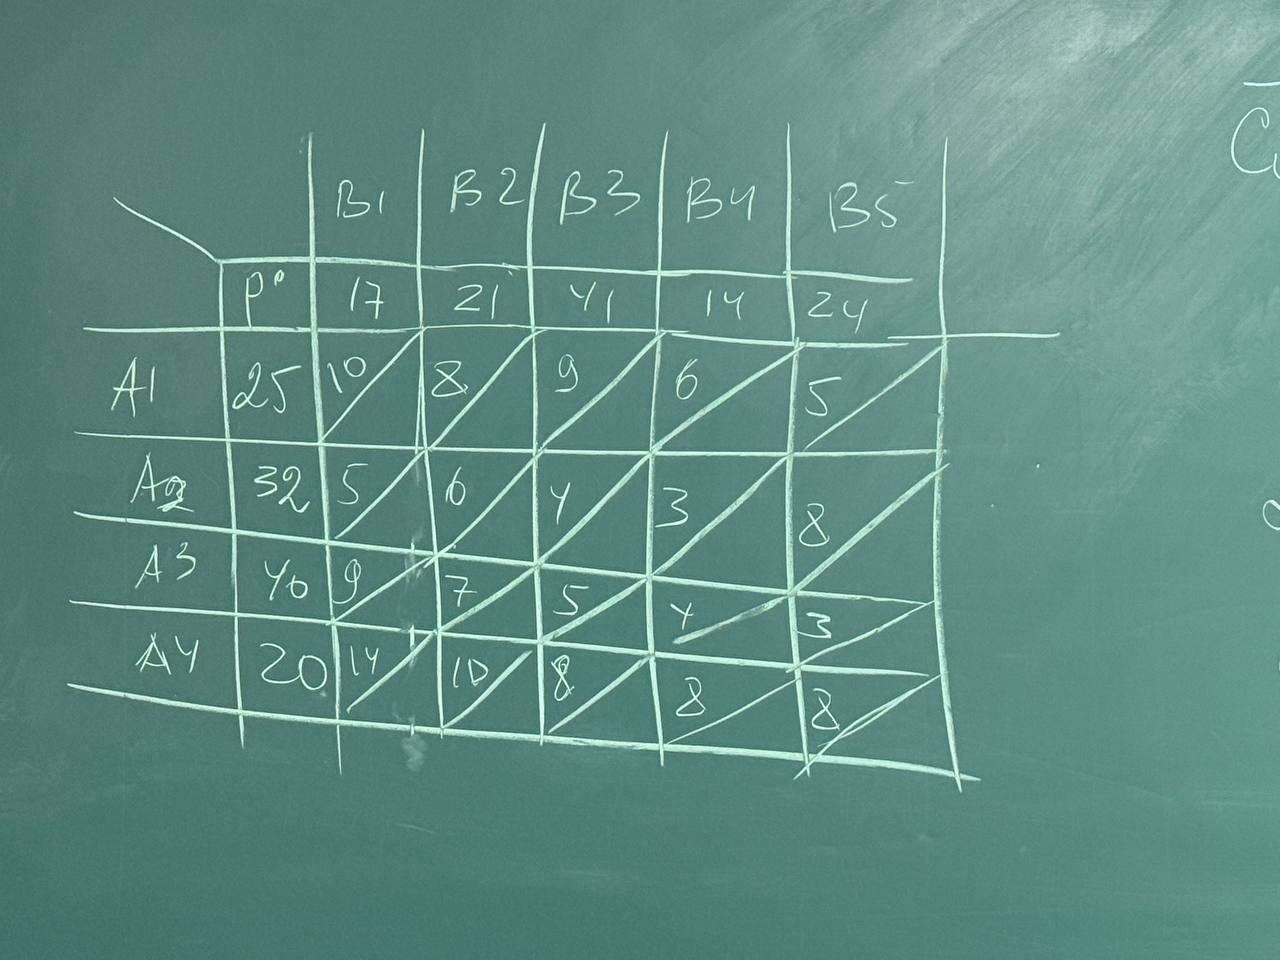 B1 B2 B3 B4 B5
P° 17 21 41 14 24
A1 25 10 8 9 6 5
A2 32 5 6 4 3 8
A3 40 9 7 5 4 3
A4 20 14 10 8 8 8